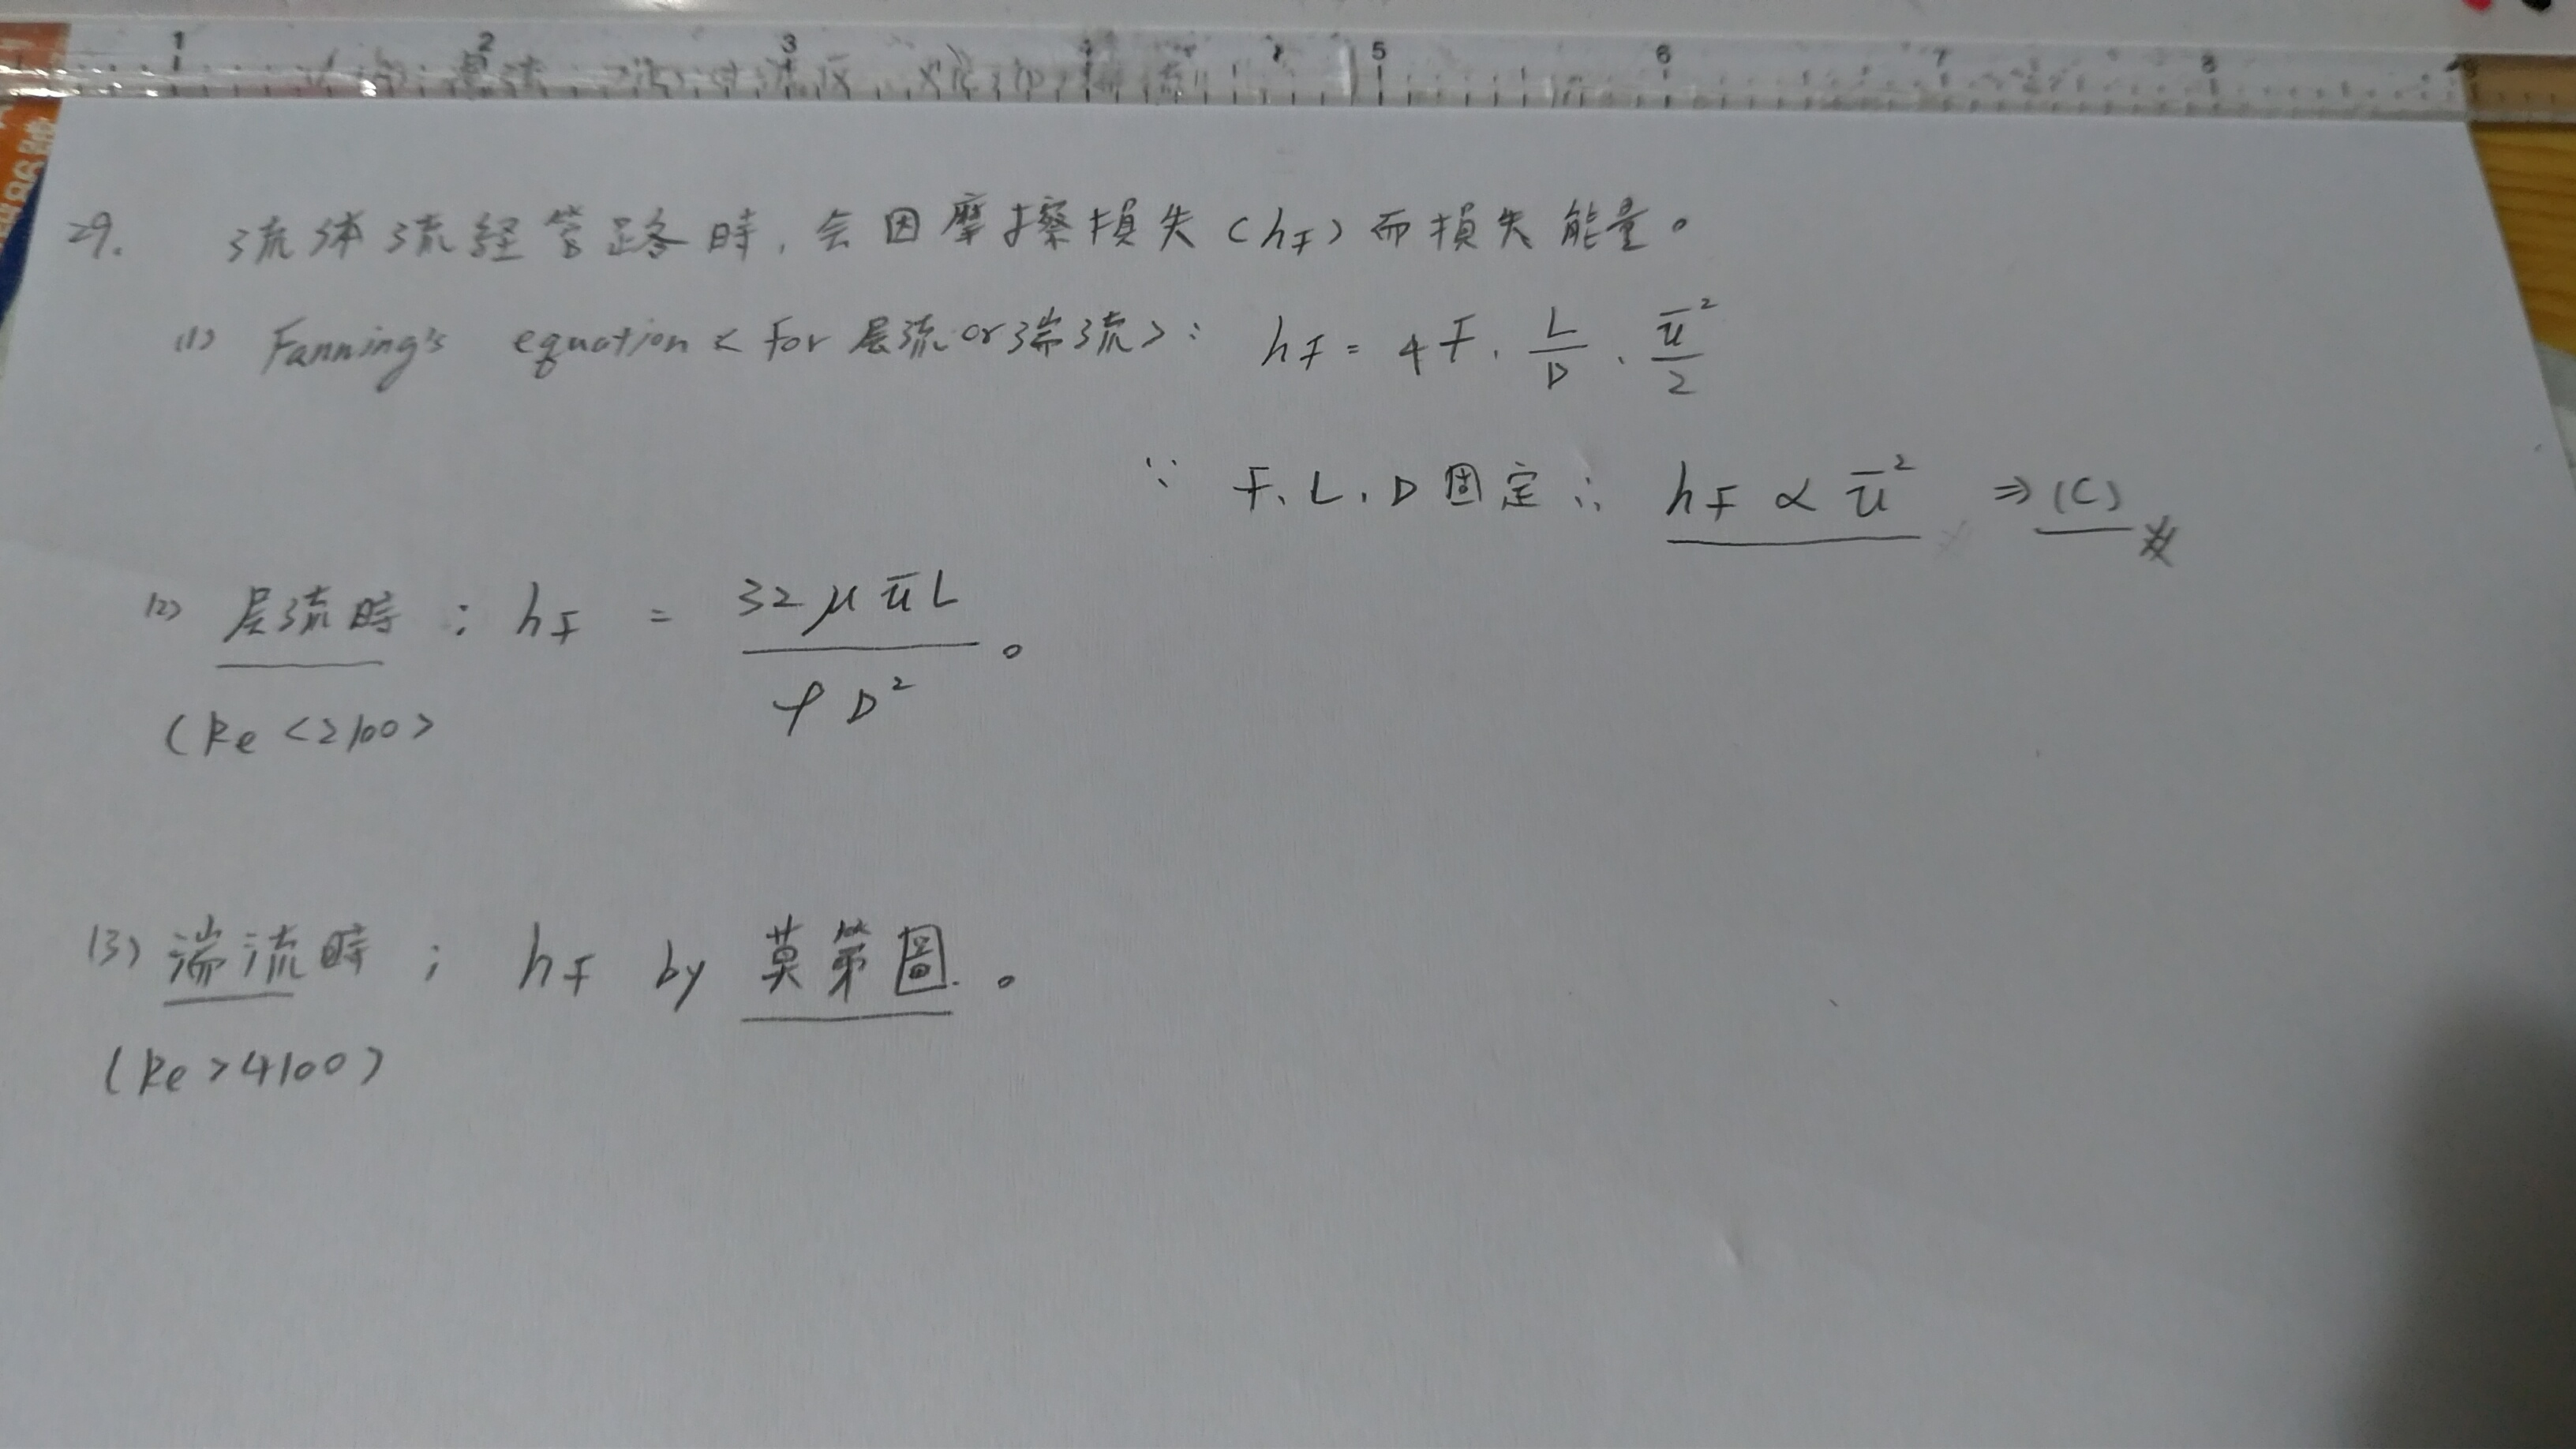 1 2 3 4 5 6 7 8
29. 流体流経管路時,会因摩擦損失(hF)而損失能量。
(1) Fanning's equation < for 层流 or 湍流 > : hF = 4F · L/D · ū²/2
∵ F、L、D固定 ∴ hF ∝ ū² ⇒ (C)
(2) 层流時 : hF = 32μūL / ρD² 。
(Re < 2100)
(3) 湍流時 ; hF by 莫第圖。
(Re > 4100)